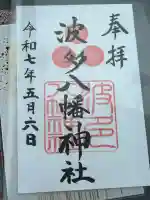 奉拝
波多八幡神社
令和七年五月六日